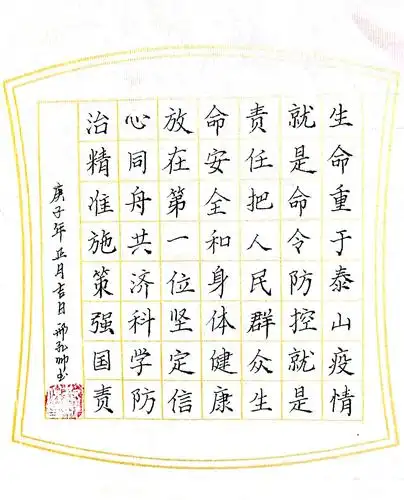 生命重于泰山疫情
就是命令防控就是
责任把人民群众生
命安全和身体健康
放在第一位坚定信
心同舟共济科学防
治精准施策强国责
庚子年正月吉日